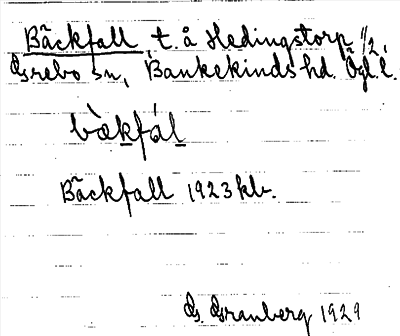 Bäckfall t. å Hedingstorp 1/2,
Grebo sn, Bankekinds hd. Ögl. l.
bækfál
Bäckfall 1923 kb.
G. Granberg 1929